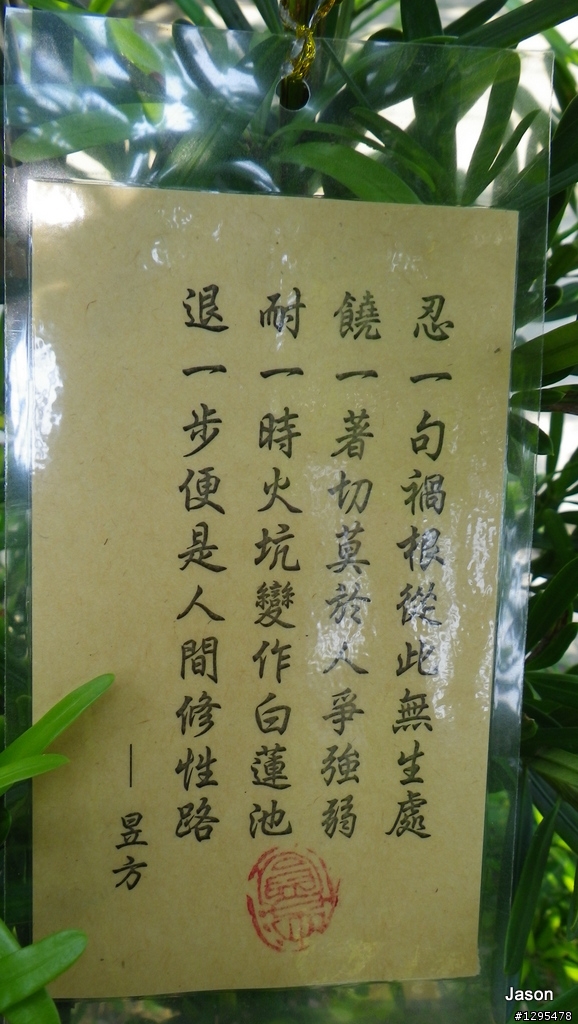 忍一句禍根從此無生處
饒一著切莫於人爭強弱
耐一時火坑變作白蓮池
退一步便是人間修性路
—昱方
Jason
#1295478